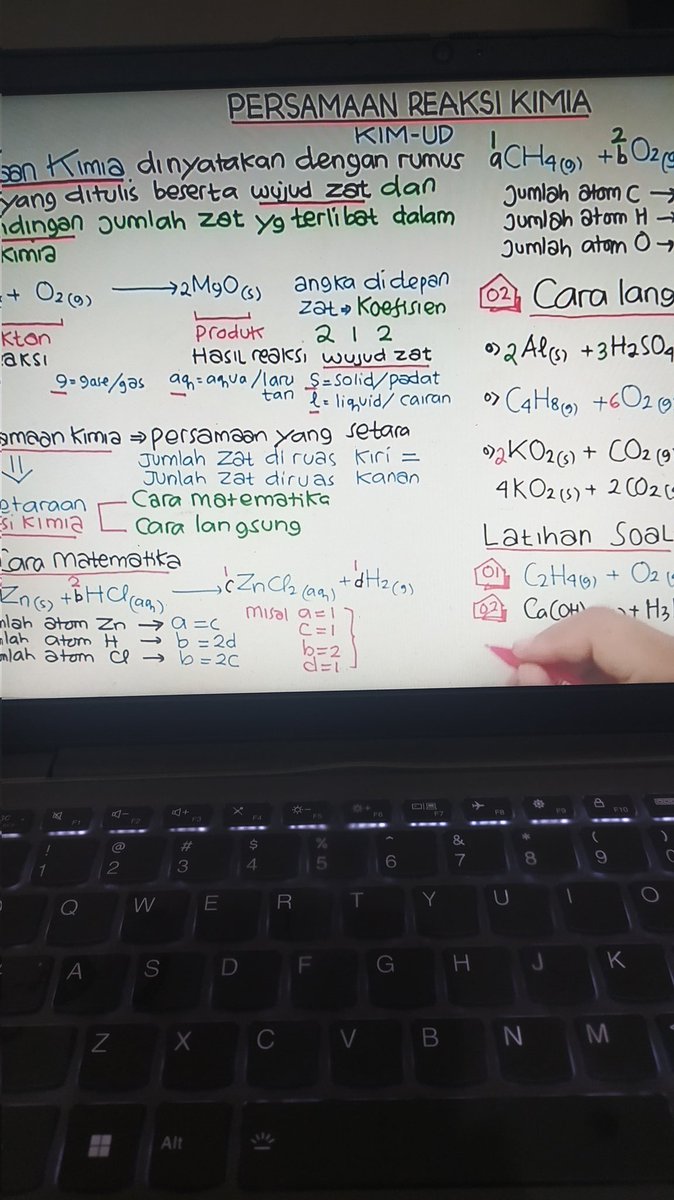 PERSAMAAN REAKSI KIMIA
KIM-UD
Kimia dinyatakan dengan rumus
yang ditulis beserta wujud zat dan
dingan jumlah zat yg terlibat dalam
kimia
+ O2(g) → 2MgO(s)
kton Produk
aksi Hasil reaksi
angka didepan
zat → Koefisien
2 1 2
wujud zat
g = gase/gas aq = aqua/laru
tan
s = solid/padat
l = liquid/cairan
amaan kimia ⇒ persamaan yang setara
Jumlah zat di ruas kiri =
Junlah zat diruas kanan
etaraan
si kimia
Cara matematika
Cara langsung
Cara Matematika
Zn(s) + 2bHCl(aq) → 1cZnCl2(aq) + 1dH2(g)
mlah atom Zn → a = c
mlah atom H → b = 2d
mlah atom Cl → b = 2c
misal a = 1
c = 1
b = 2
d = 1
1aCH4(g) + 2bO2(g
Jumlah atom C →
Jumlah atom H →
Jumlah atom O →
02 Cara lang
o) 2Al(s) + 3H2SO4
o) C4H8(g) + 6O2(g
o) 2KO2(s) + CO2(g
4KO2(s) + 2CO2(
Latihan Soal
01 C2H4(g) + O2(
02 Ca(OH) + H3
F1 F2 F3 F4 F5 F6 F7 F8 F9 F10
! @ # $ % ^ & * ( )
1 2 3 4 5 6 7 8 9 0
Q W E R T Y U I O
A S D F G H J K
Z X C V B N M
Alt